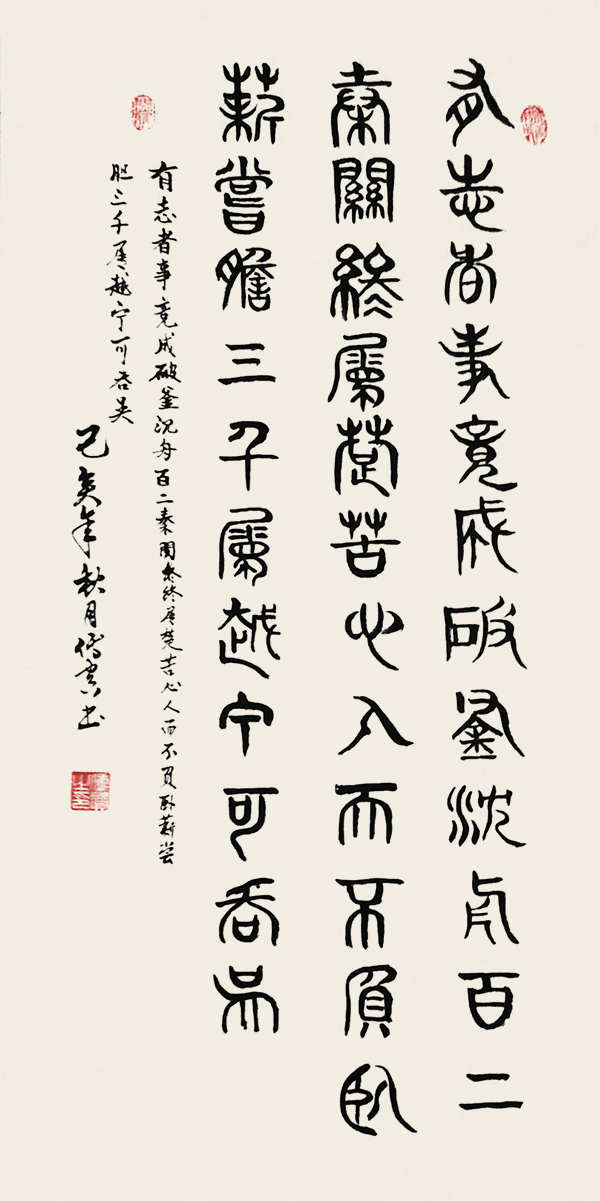 有志者事竟成破釜沈舟百二
秦關終屬楚苦心人而不負臥
薪嘗膽三千屬越宁可吞吳
有志者事竟成破釜沉舟百二秦関终属楚苦心人而不負卧薪尝
胆三千属越宁可吞吴
己亥年秋月书